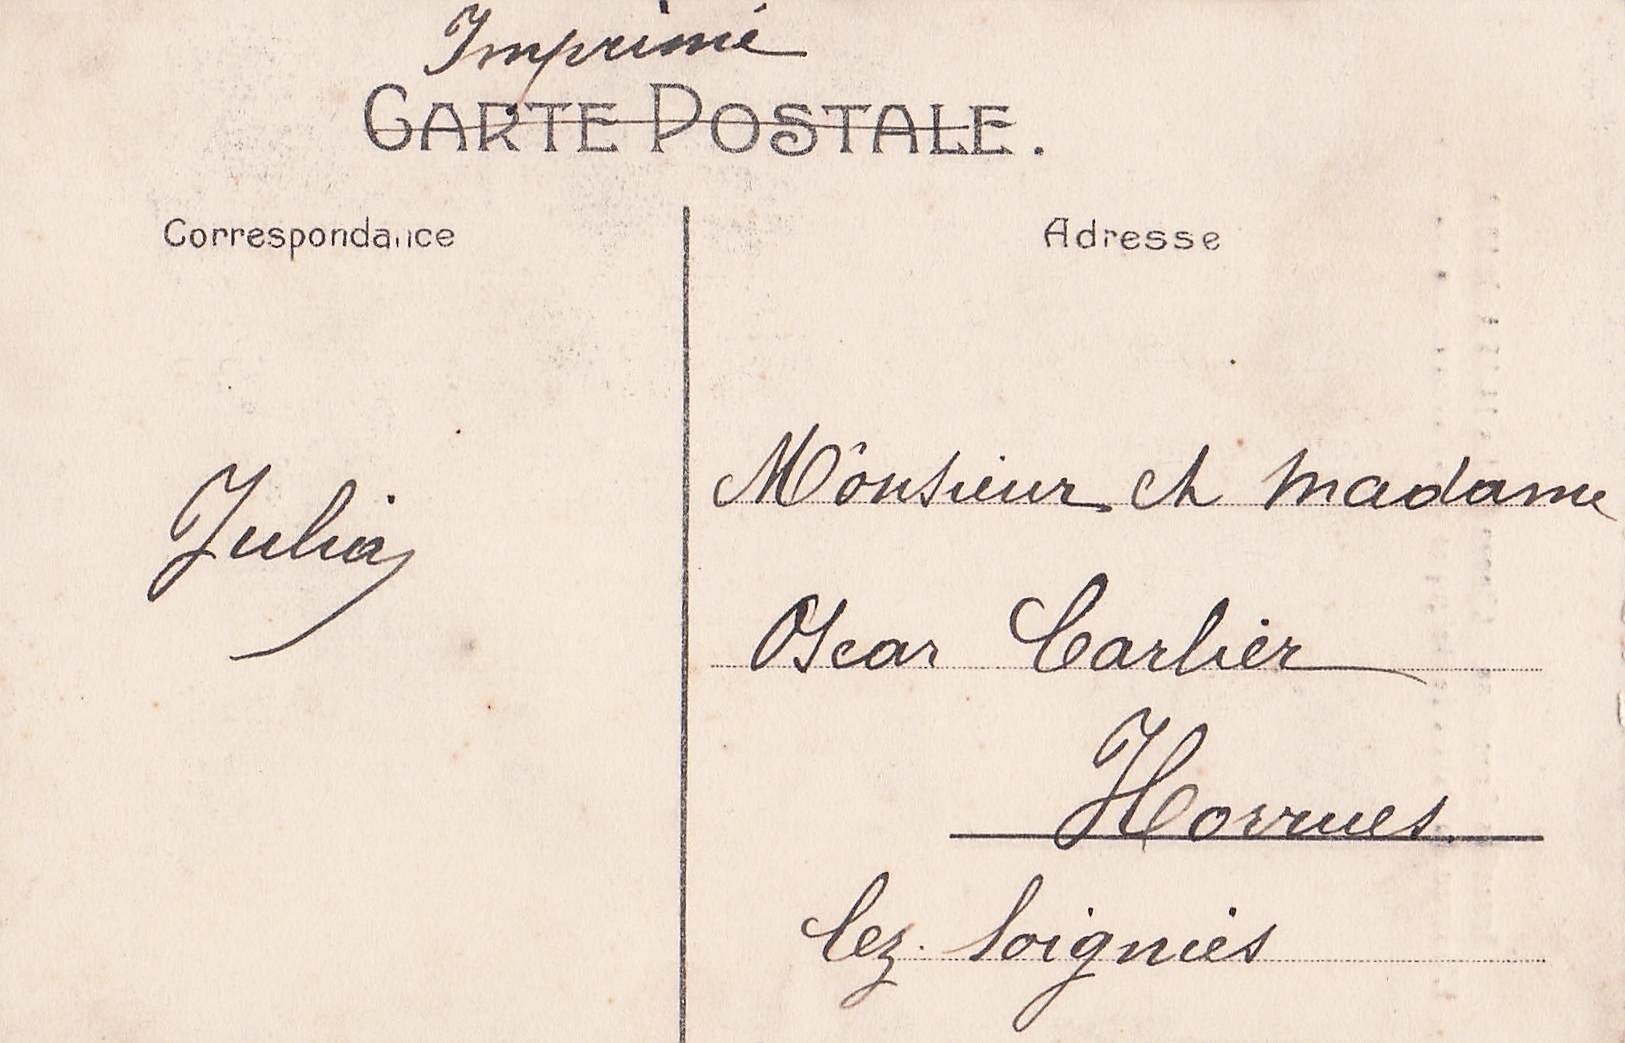 Imprimé
CARTE POSTALE.
Correspondance
Adresse
Julia
Monsieur et Madame
Oscar Carlier
Horrues
lez Soignies